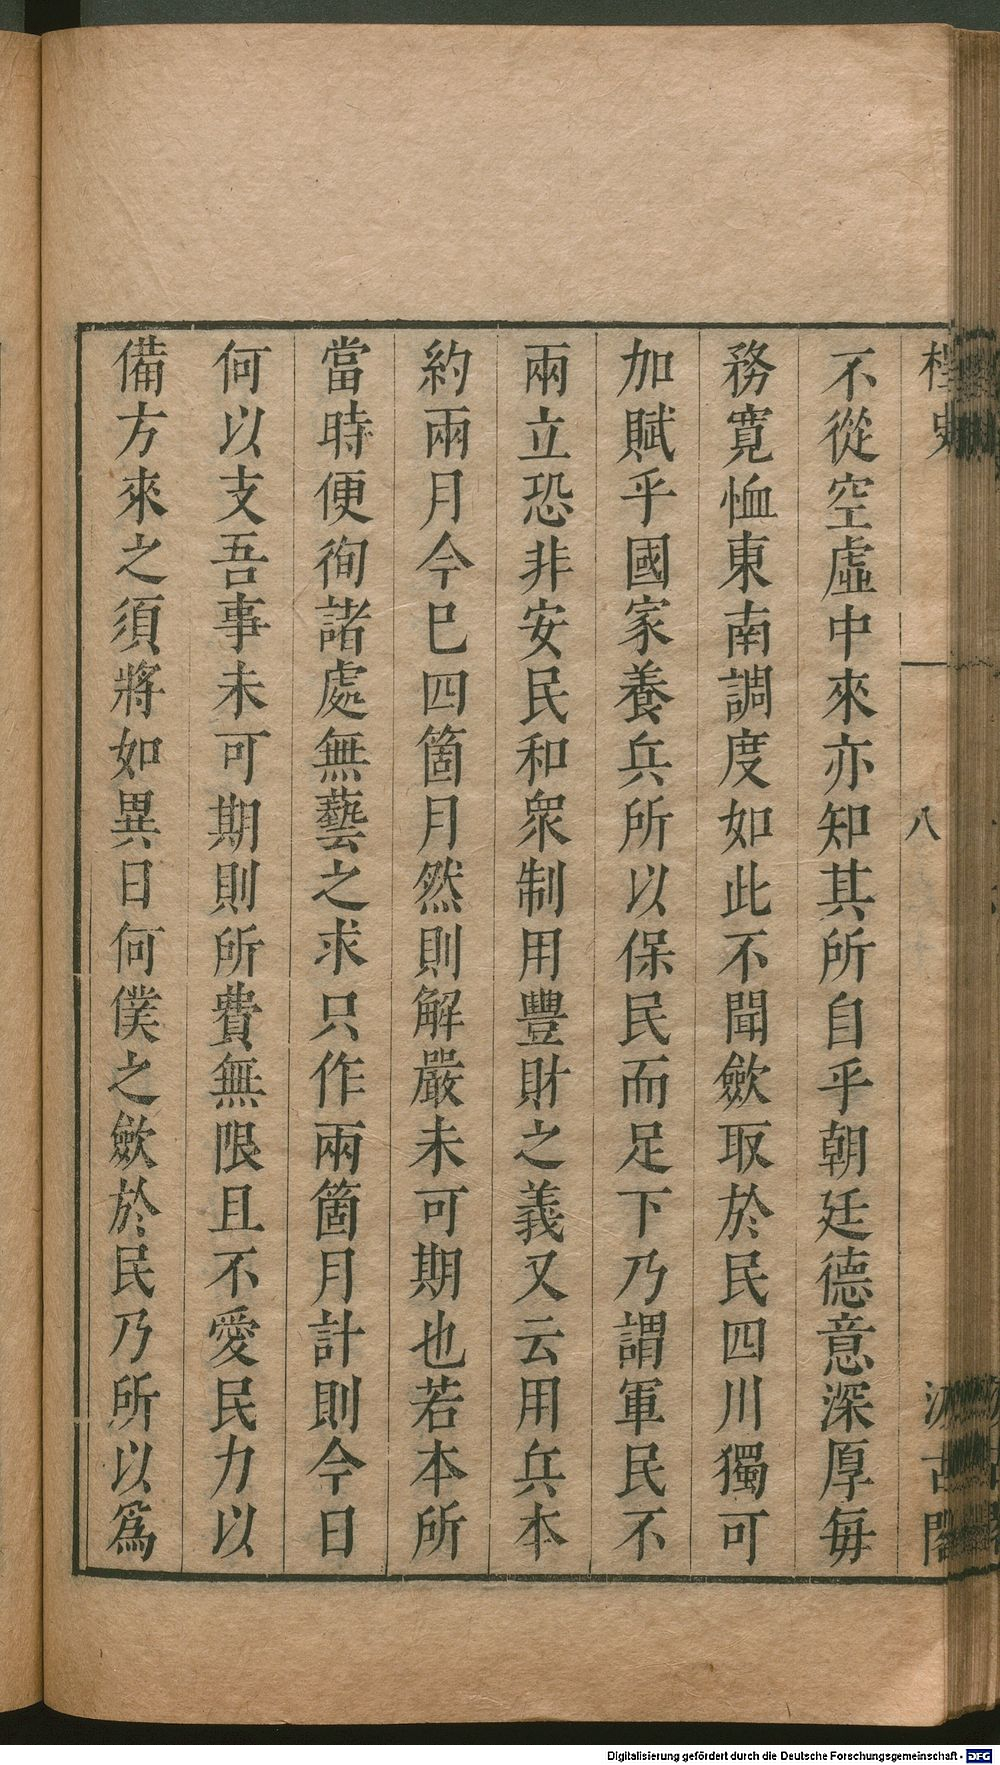 桯史
八
汲古閣
不從空虛中來亦知其所自乎朝廷德意深厚每
務寬恤東南調度如此不聞歛取於民四川獨可
加賦乎國家養兵所以保民而足下乃謂軍民不
兩立恐非安民和衆制用豐財之義又云用兵本
約兩月今巳四箇月然則解嚴未可期也若本所
當時便徇諸處無藝之求只作兩箇月計則今日
何以支吾事未可期則所費無限且不愛民力以
備方來之須將如異日何僕之歛於民乃所以爲
Digitalisierung gefördert durch die Deutsche Forschungsgemeinschaft - DFG